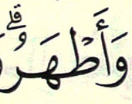 وَأَطْهَرُۗ